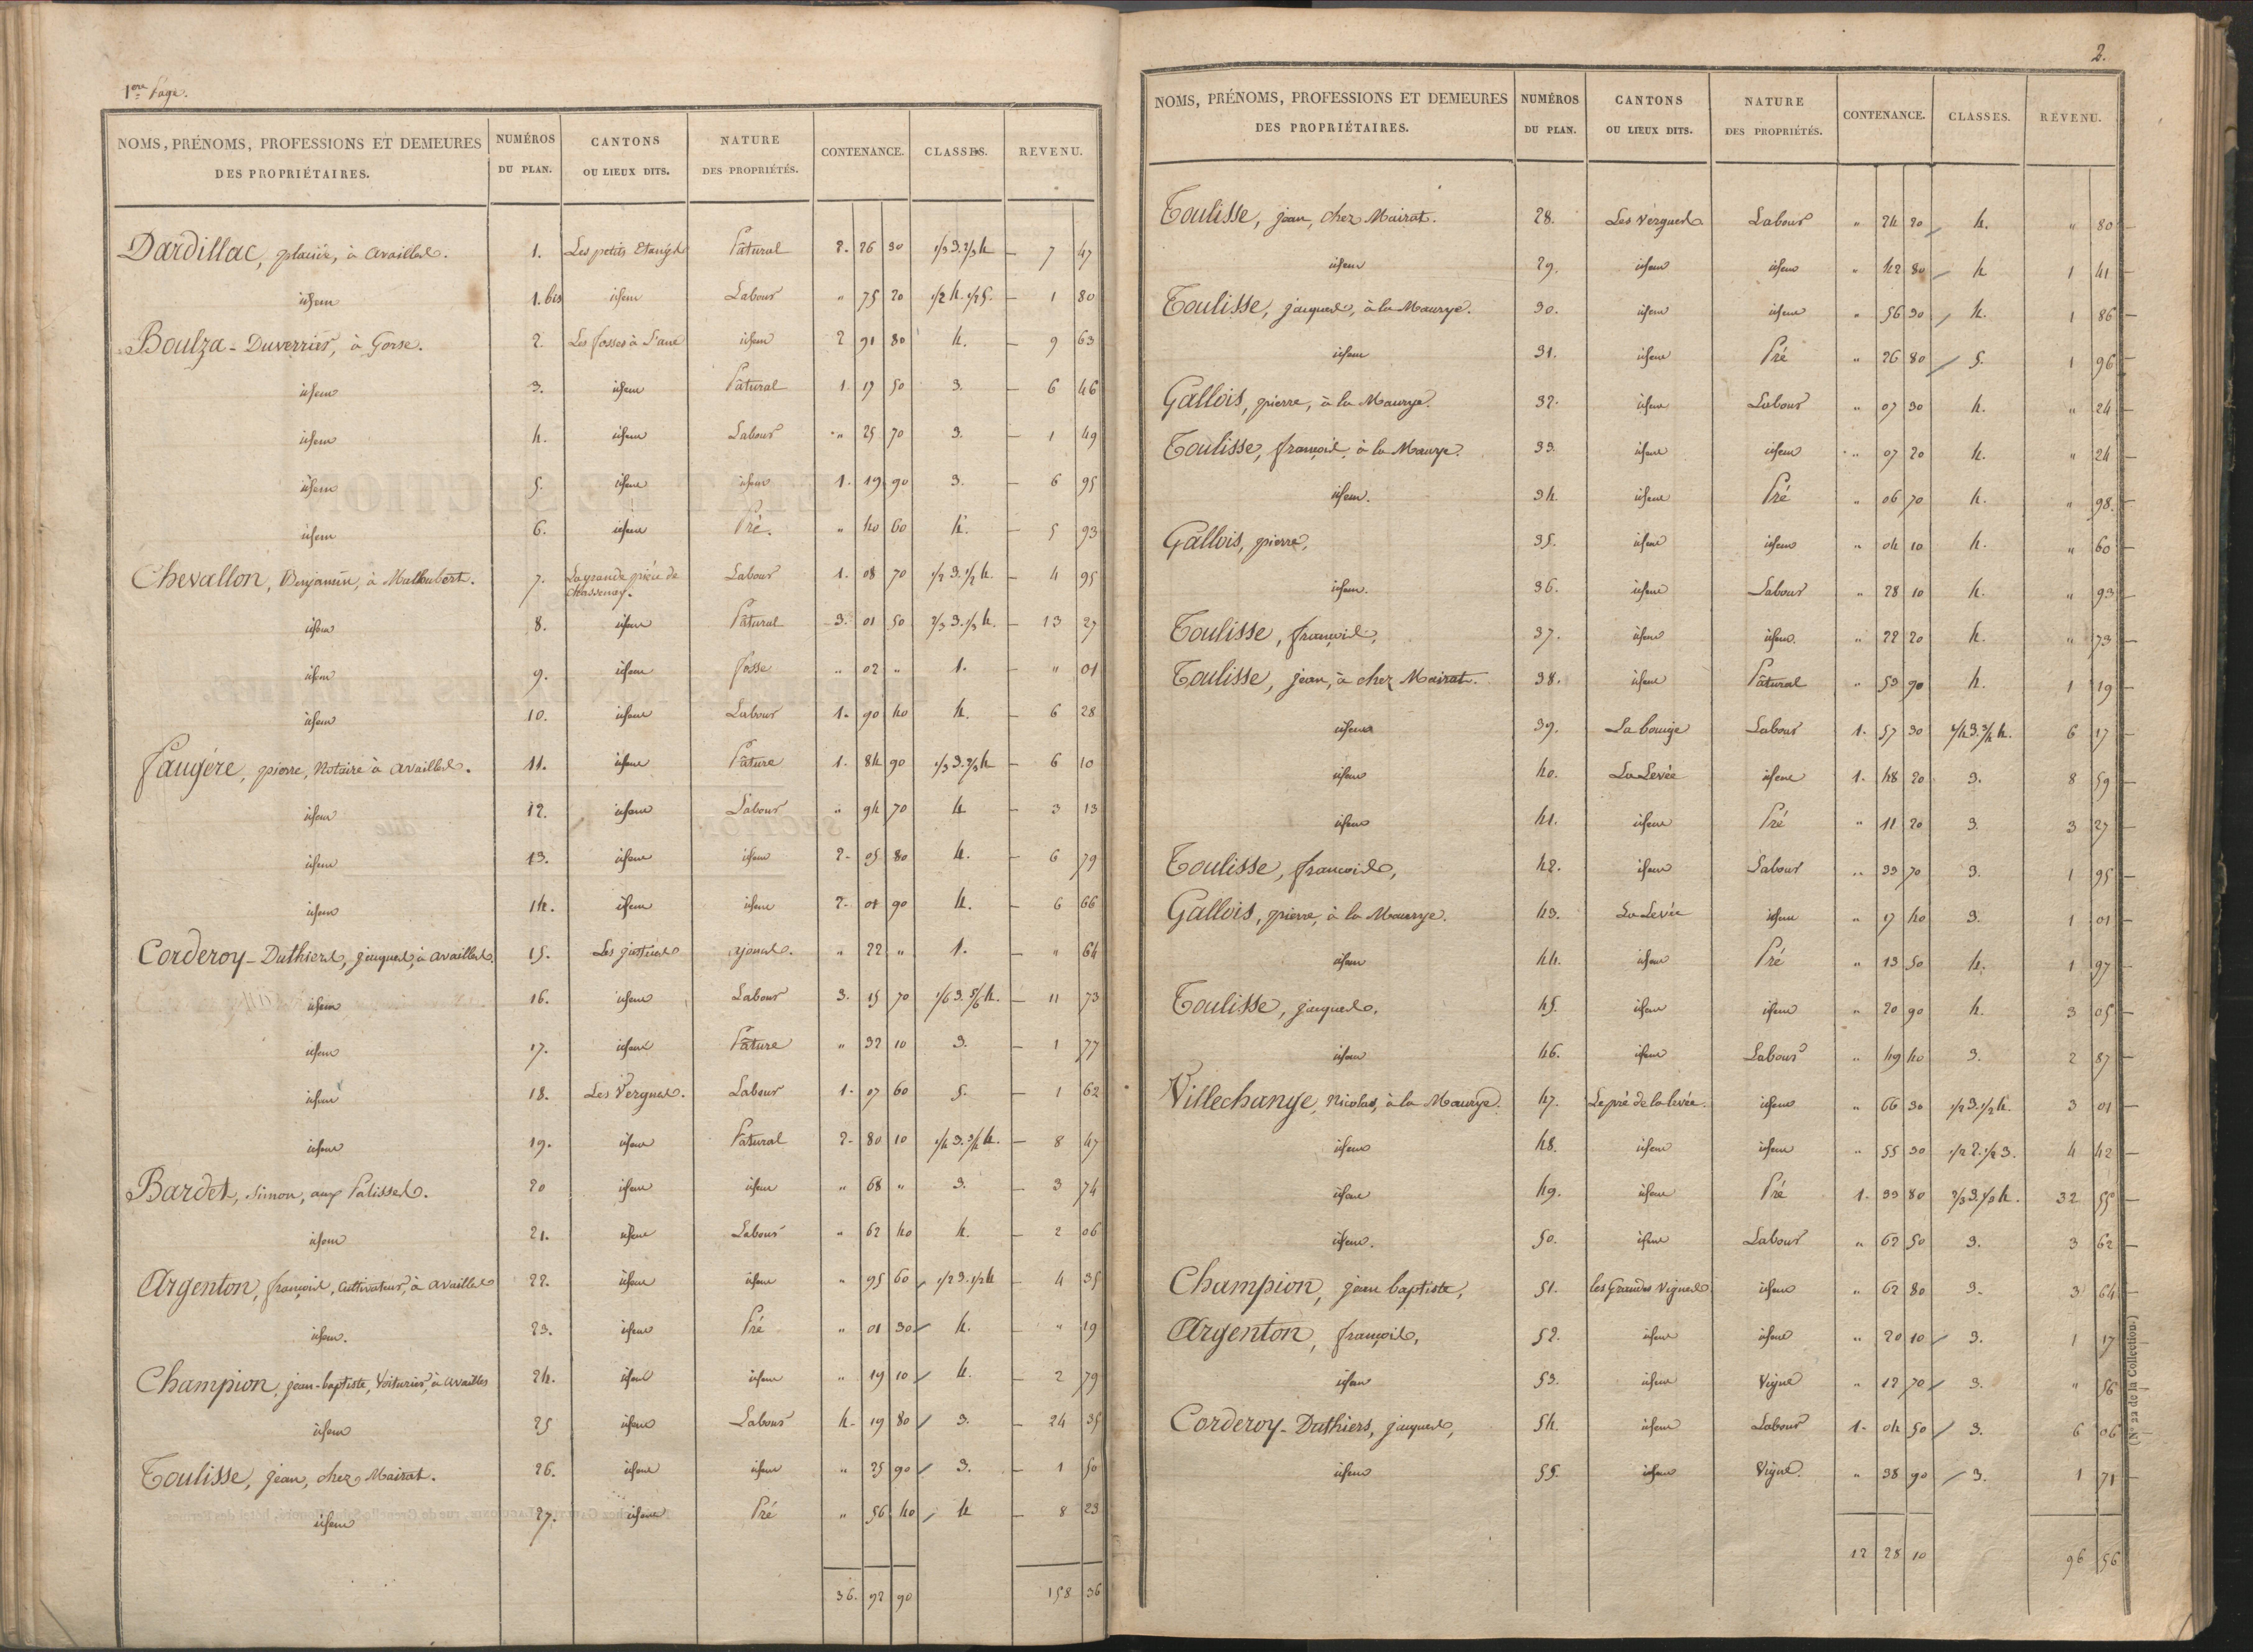 1ere Page.
NOMS, PRÉNOMS, PROFESSIONS ET DEMEURES DES PROPRIÉTAIRES. | NUMÉROS DU PLAN. | CANTONS OU LIEUX DITS. | NATURE DES PROPRIÉTÉS. | CONTENANCE. | CLASSES. | REVENU.
Dardillac, à availles. 1. Les petits Etangs Pâtural 2. 26 30 1/3 3. 2/3 4 7 47
idem 1. bis idem Labour " 75 20 1/2 4. 1/2 5. 1 80
Boulza-Duverrier, à Gorse. 2. Les fosses à L'ane idem 2 91 80 4. 9 63
idem 3. idem Pâtural 1. 17 50 3. 6 46
idem 4. idem Labour " 25 70 3. 1 49
idem 5. idem idem 1. 19 90 3. 6 95
idem 6. idem Pré. " 40 60 4. 5 93
Chevallon, Benjamin, à Malhubert. 7. La grande pièce de Chassenay. Labour 1. 08 70 1/2 3. 1/2 4. 4 95
idem 8. idem Pâtural 3. 01 50 2/3 3. 1/3 4. 13 27
idem 9. idem fosse " 02 " 1. " 01
idem 10. idem Labour 1. 90 40 4. 6 28
Faugère, pierre, Notaire à availles. 11. idem Pâture 1. 84 90 1/3 3. 2/3 4 6 10
idem 12. idem Labour " 94 70 4 3 13
idem 13. idem idem 2. 05 80 4. 6 79
idem 14. idem idem 2. 01 90 4. 6 66
Corderoy-Duthiers, jacques, à availles. 15. Les ajoncs. " 22 " 1. " 64
idem 16. idem Labour 3. 15 70 1/6 3. 5/6 4. 11 73
idem 17. idem Pâture " 32 10 3. 1 77
idem 18. Les Vergnes. Labour 1. 07 60 5. 1 62
idem 19. idem Pâtural 2. 80 10 1/4 3. 3/4 4. 8 47
Bardet, Simon, aux Palisses. 20 idem idem " 68 " 3. 3 74
idem 21. idem Labour " 62 40 4. 2 06
Argenton, françois, cultivateur, à availles 22. idem idem " 95 60 1/2 3. 1/2 4 4 35
idem. 23. idem Pré " 01 30 4. " 19
Champion, jean-baptiste, Voiturier, à availles 24. idem idem " 19 10 4. 2 79
idem 25 idem Labour 4. 19 80 3. 24 35
Toulisse, jean, chez Mairat. 26. idem idem " 25 90 3. 1 50
idem 27. idem Pré " 56 40 4 8 23
36. 92 90 158 36
2.
NOMS, PRÉNOMS, PROFESSIONS ET DEMEURES DES PROPRIÉTAIRES. | NUMÉROS DU PLAN. | CANTONS OU LIEUX DITS. | NATURE DES PROPRIÉTÉS. | CONTENANCE. | CLASSES. | REVENU.
Toulisse, jean, chez Mairat. 28. Les Vergnes Labour " 24 20 4. " 80
idem 29. idem idem " 42 80 4 1 41
Toulisse, jacques, à la Maurye. 30. idem idem " 56 30 4. 1 86
idem 31. idem Pré " 26 80 5. 1 96
Gallois, pierre, à la Maurye. 32. idem Labour " 07 30 4. " 24
Toulisse, françois, à la Maurye. 33. idem idem " 07 20 4. " 24
idem. 34. idem Pré " 06 70 4. " 98.
Gallois, pierre, 35. idem idem " 04 10 4. " 60
idem. 36. idem Labour " 28 10 4. " 93
Toulisse, françois, 37. idem idem. " 22 20 4. " 73
Toulisse, jean, à chez Mairat. 38. idem Pâtural " 53 90 4. 1 19
idem 39. La bouige Labour 1. 57 30 1/4 3. 3/4 4. 6 17
idem 40. La Levée idem 1. 48 20 3. 8 59
idem 41. idem Pré " 11 20 3. 3 27
Toulisse, françois, 42. idem Labour " 33 70 3. 1 95
Gallois, pierre, à la Maurye. 43. La Levée idem " 17 40 3. 1 01
idem 44. idem Pré " 13 50 4. 1 97
Toulisse, jacques, 45. idem idem " 20 90 4. 3 05
idem 46. idem Labour " 49 40 3. 2 87
Villechange, Nicolas, à la Maurye. 47. Le pré de la levée. idem " 66 30 1/2 3. 1/2 4. 3 01
idem 48. idem idem " 55 30 1/2 2. 1/2 3. 4 42
idem 49. idem Pré 1. 33 80 2/3 3. 1/3 4. 32 55
idem. 50. idem Labour " 62 50 3. 3 62
Champion, jean baptiste, 51. les Grandes Vignes idem " 62 80 3. 3 64
Argenton, françois, 52. idem idem " 20 10 3. 1 17
idem 53. idem Vigne " 12 70 3. " 56
Corderoy-Duthiers, jacques, 54. idem Labour 1. 04 50 3. 6 06
idem 55. idem Vigne. " 38 90 3. 1 71
12 28 10 96 56
(N° 22 de la Collection.)